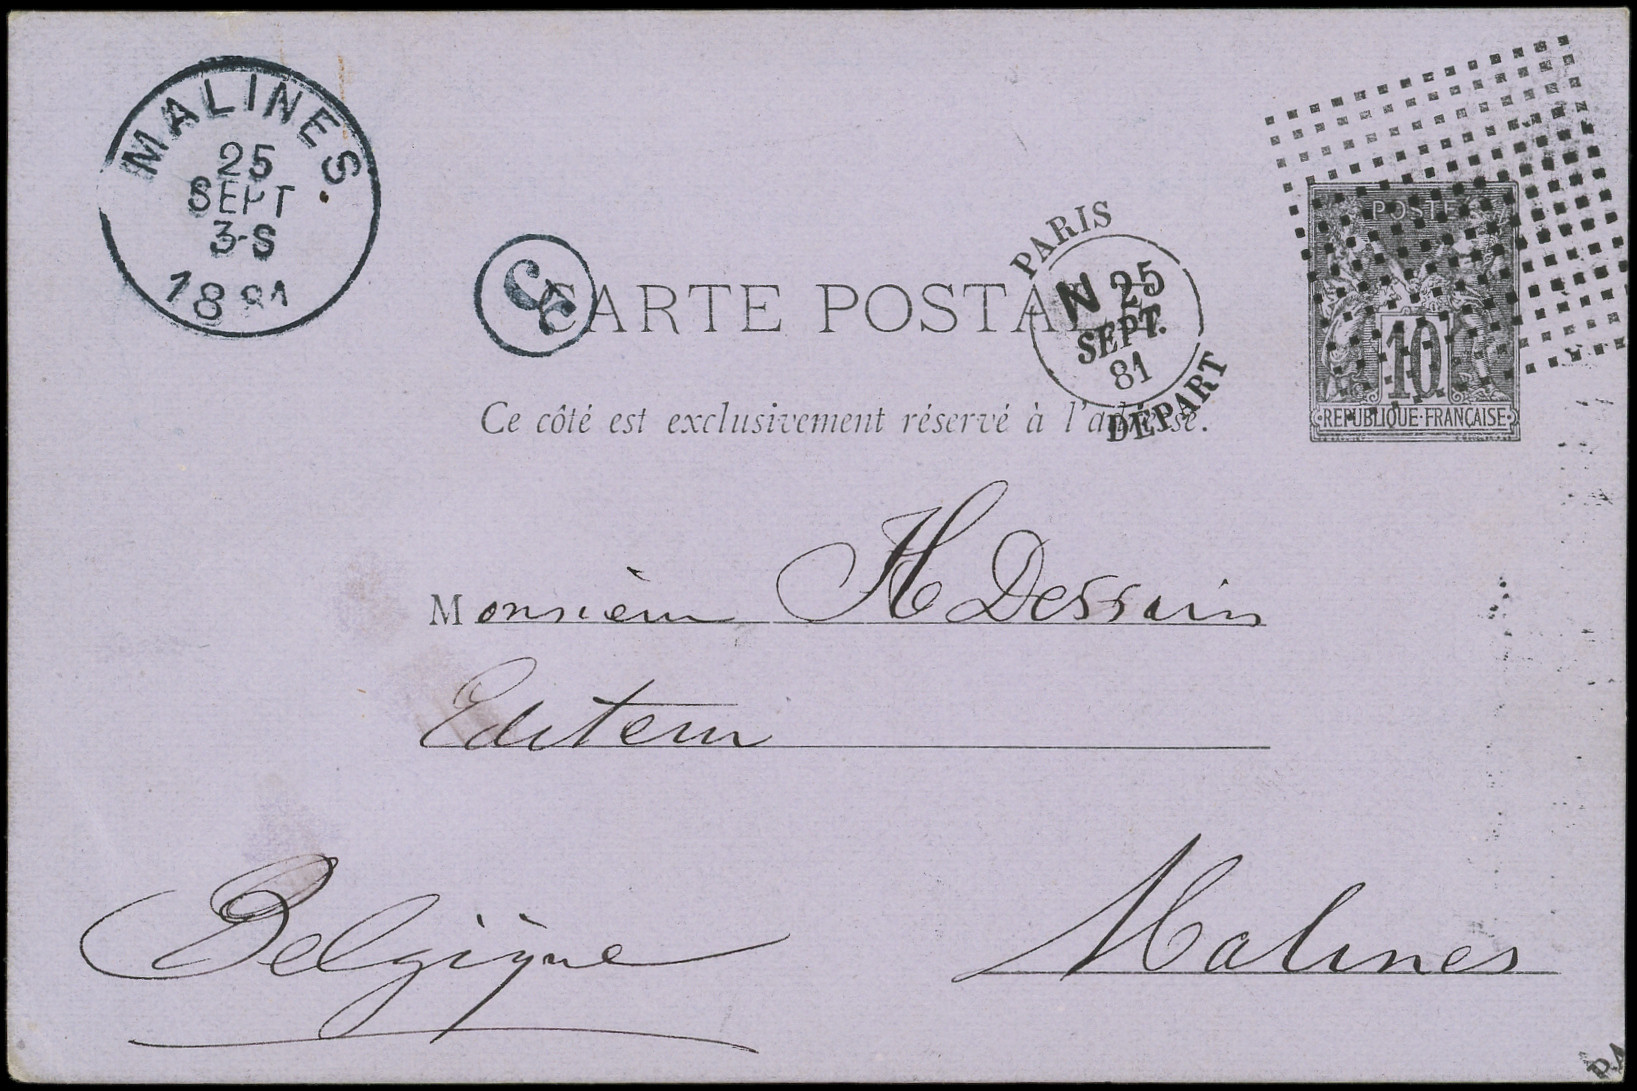 MALINES.
25
SEPT
3-S
1881
PARIS
N 25
SEPT.
81
DÉPART
POSTES
10
REPUBLIQUE·FRANÇAISE
CARTE POSTALE
Ce côté est exclusivement réservé à l'adresse.
Monsieur H Dessain
Editeur
Malines
Belgique